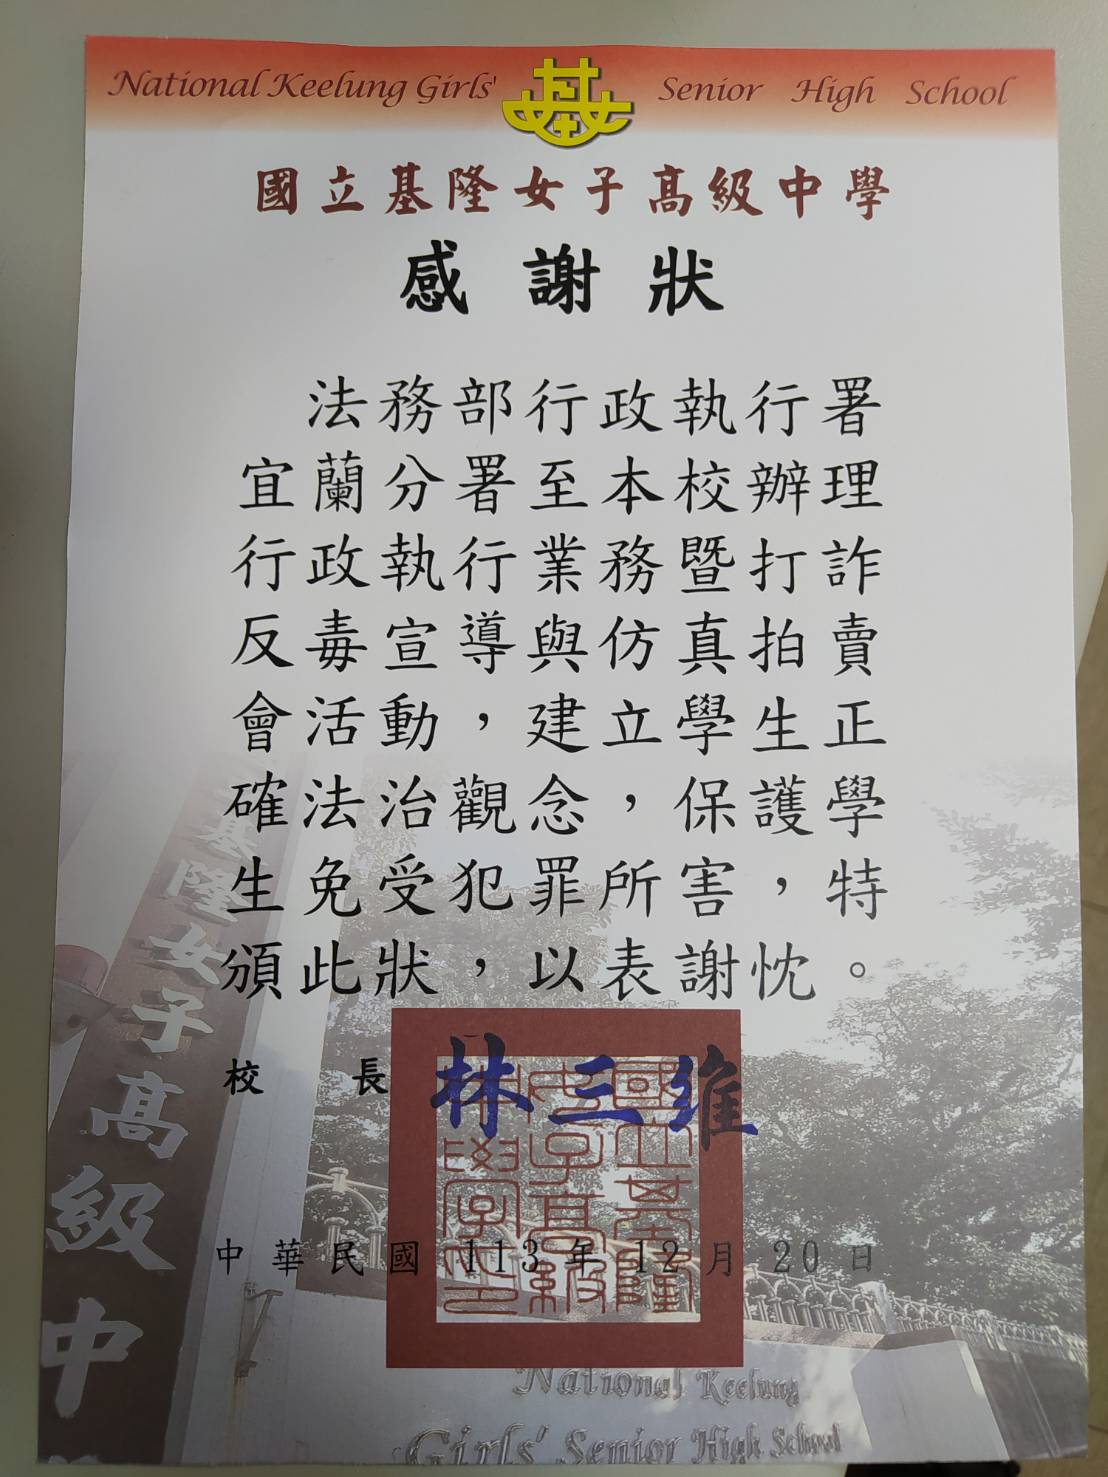 National Keelung Girls' Senior High School
國立基隆女子高級中學
感謝狀
法務部行政執行署
宜蘭分署至本校辦理
行政執行業務暨打詐
反毒宣導與仿真拍賣
會活動，建立學生正
確法治觀念，保護學
生免受犯罪所害，特
頒此狀，以表謝忱。
校長 林三維
國立基隆
女子高級
中學印
中華民國 113 年 12 月 20 日
基隆女子高級中
National Keelung
Girls' Senior High School